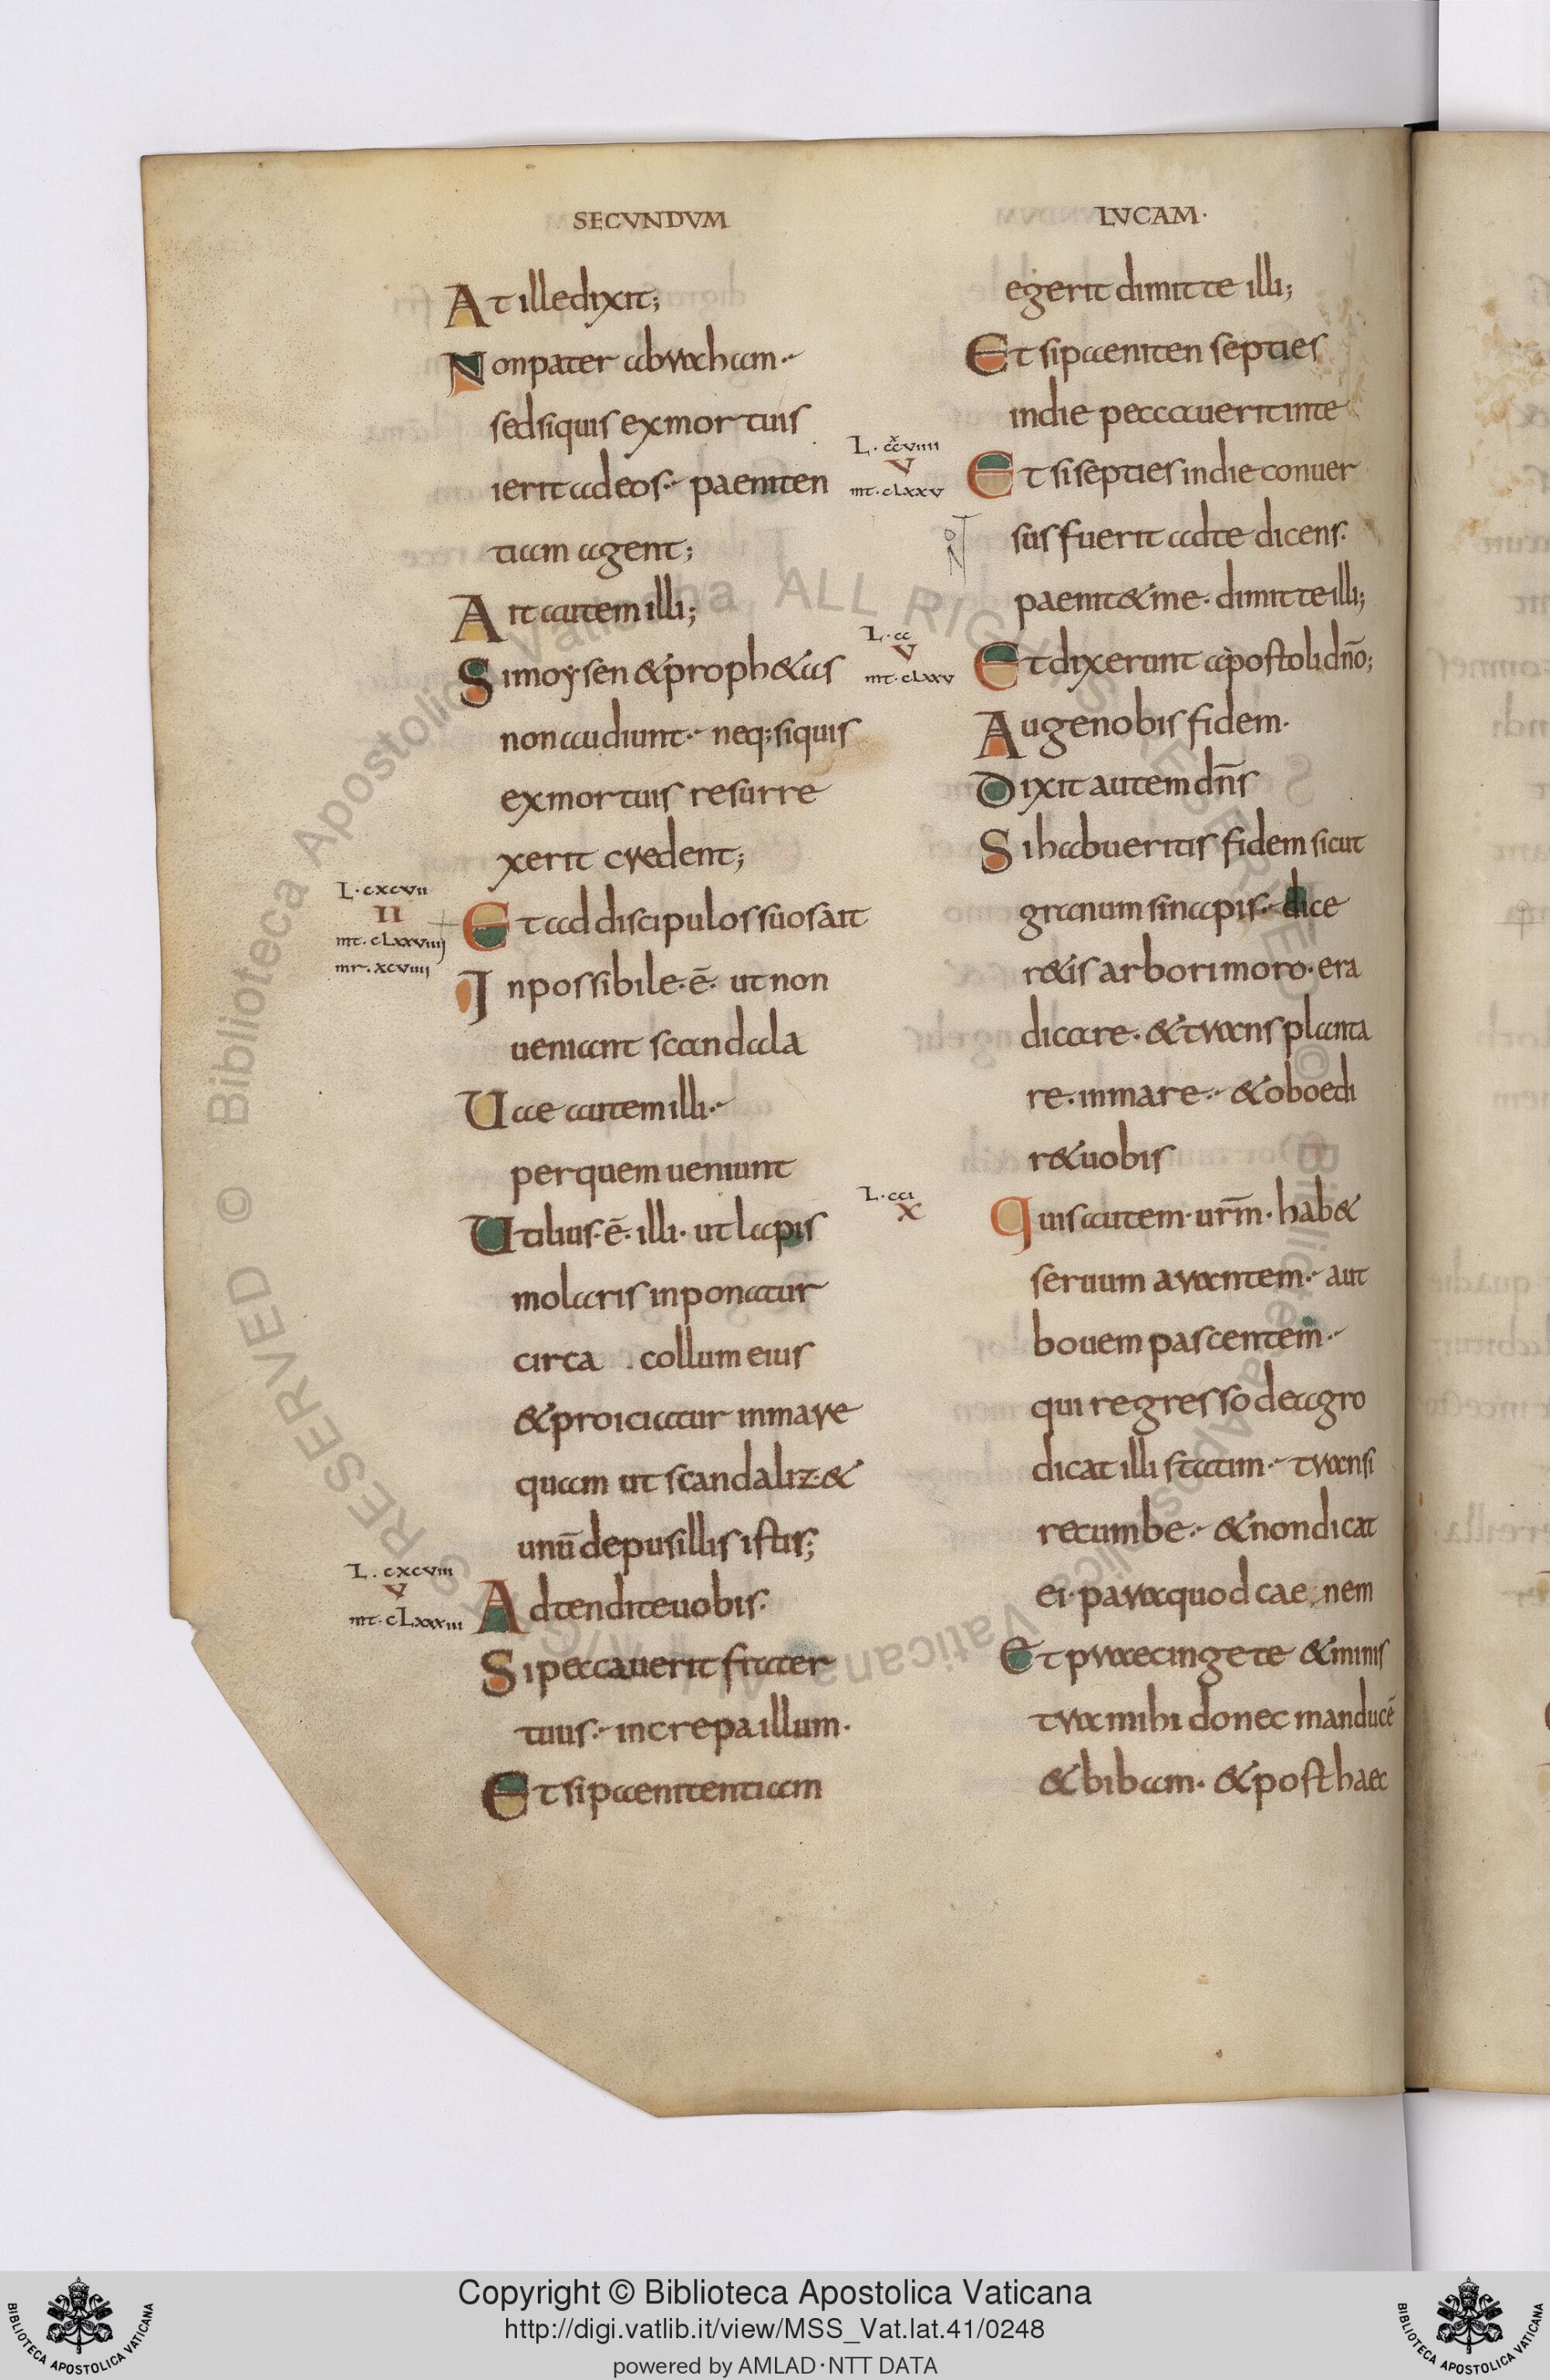 SECVNDVM
At ille dixit;
Non pater abraham·
sed siquis ex mortuis
ierit ad eos· paeniten
tiam agent;
Ait autem illi;
Si moysen & proph&as
non audiunt· neq; siquis
ex mortuis resurre
xerit credent;
L·cxcvii
II
mt·cLxxviiij
mr·xcviiij
Et ad discipulos suos ait
Inpossibile·ē· ut non
ueniant scandala
Uae autem illi·
per quem ueniunt
Utilius·ē· illi· ut lapis
molaris inponatur
circa collum eius
& proiciatur in mare
quam ut scandaliz&
unū de pusillis istis;
L·cxcviii
V
mt·cLxxxiii
Adtendite uobis·
Si peccauerit frater
tuus· increpa illum·
Et si paenitentiam
LVCAM·
egerit dimitte illi;
Et si paeniten septies
in die peccauerit in te
L·ccviiii
V
mt·cLxxv
Et si septies in die conuer
sus fuerit ad te dicens·
paenit& me· dimitte illi;
L·cc
V
mt·cLxxv
Et dixerunt apostoli dn̄o;
Auge nobis fidem·
Dixit autem dn̄s
Si habueritis fidem sicut
granum sinapis· dice
r&is arbori moro· era
dicare· & transplanta
re· in mare· & oboedi
r& uobis
L·cci
X
Quis autem· ur̄m· hab&
seruum arantem· aut
bouem pascentem·
qui regresso de agro
dicat illi statim· transi
recumbe· & non dicat
ei· para quod cae nem
Et praecinge te & minis
tra mihi donec manducē
& bibam· & post haec
© Biblioteca Apostolica Vaticana ALL RIGHTS RESERVED © Biblioteca Apostolica Vaticana ALL RIGHTS RESERVED
Copyright © Biblioteca Apostolica Vaticana
http://digi.vatlib.it/view/MSS_Vat.lat.41/0248
powered by AMLAD·NTT DATA
BIBLIOTECA APOSTOLICA VATICANA
BIBLIOTECA APOSTOLICA VATICANA